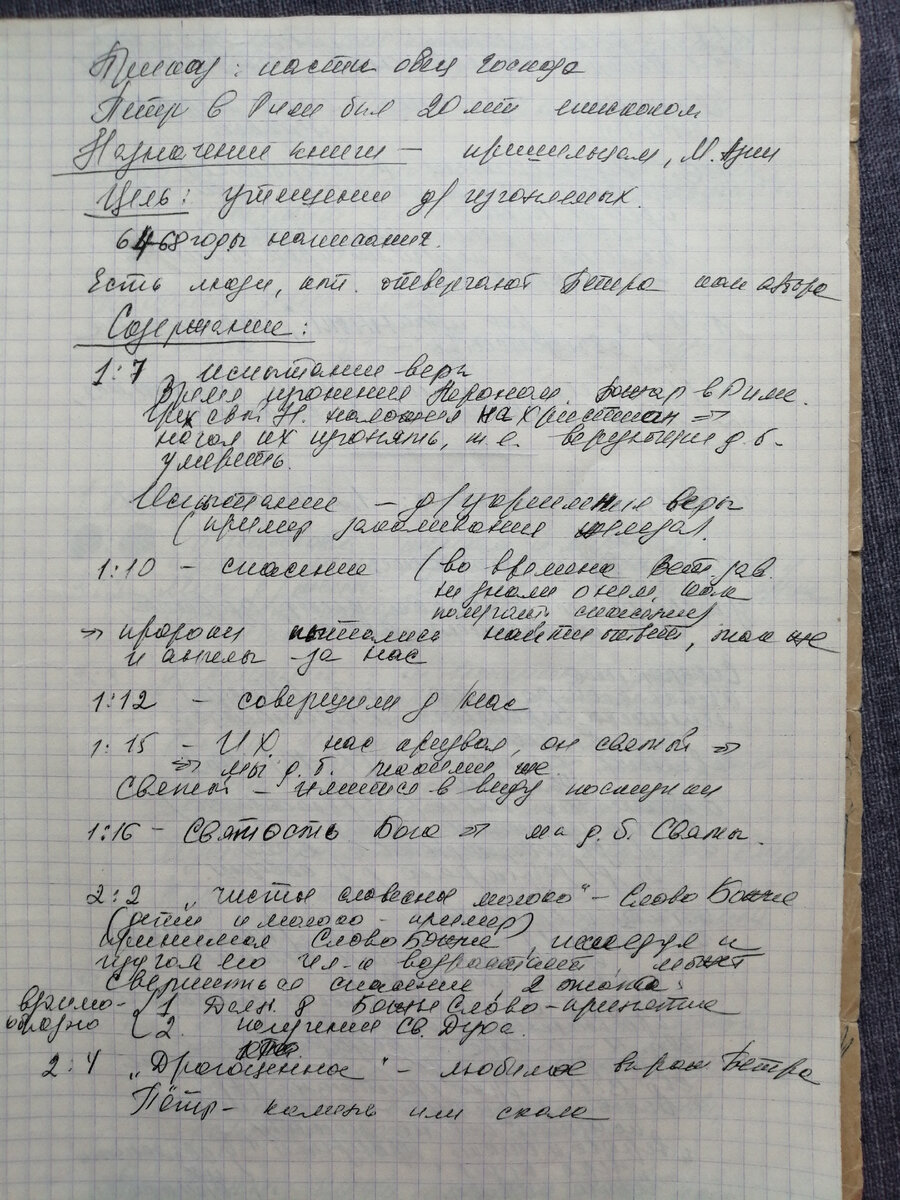 Приказ: пасти овец господа
Пётр в Риме был 20 лет епископом
Назначение книги – пришельцам, М. Азии
Цель: утешение д/ изгоняемых.
64-68 годы написания.
Есть люди, кот. отвергают Петра как автора
Содержание:
1:7 испытание веры
Время изгнания Нероном. Пожар в Риме.
Н. наложил на христиан ⇒
начал их изгонять, т.е. верующие д.б.
умереть.
Испытание – д/ укрепления веры
(пример закаливания железа).
1:10 – спасение (во времена Ветх. зав.
не знали о нем, как
получат спасение)
→ пророки пытались найти ответ, так же
и ангелы за нас
1:12 – совершили д/ нас
1:15 – И.Х. нас призвал, он святой ⇒
⇒ мы д.б. такими же.
Святой – имеется в виду поступки
1:16 – Святость Бога ⇒ мы д.б. Святы.
2:2 „чистое словесное молоко" – Слово Божие
(дети и молоко – пример)
принимая Слово Божие, исследуя и
изучая его чел-к возрастает, может
свершиться спасение, 2
взаимо- { 1 Деян. 8 Божие Слово – принятие
образно { 2. получение Св. Духа.
2:4 „Драгоценное" – любимое выраж Петра
Пётр – камень или скала